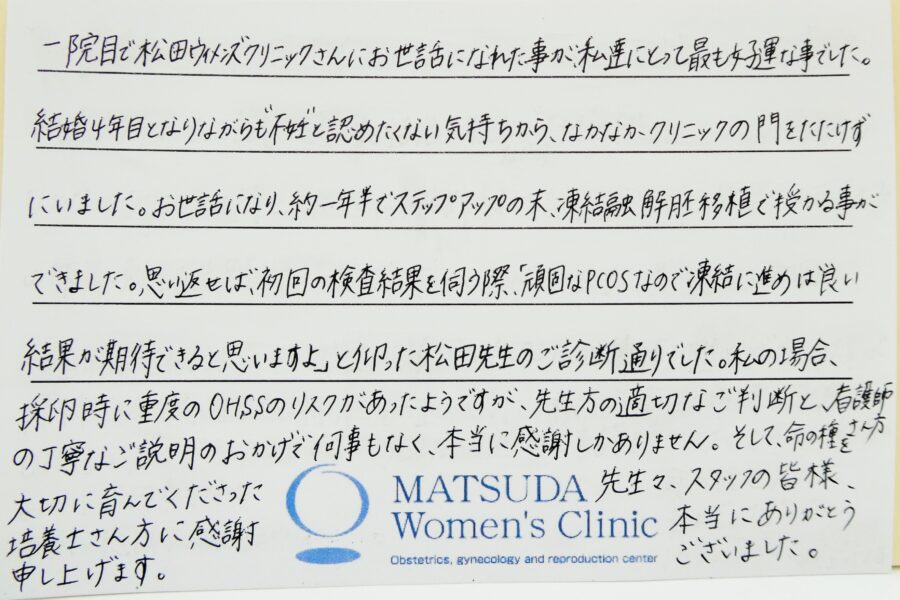 一院目で松田ウィメンズクリニックさんにお世話になれた事が、私達にとって最も好運な事でした。
結婚4年目となりながらも"不妊"と認めたくない気持ちから、なかなかクリニックの門をたたけず
にいました。お世話になり、約一年半でステップアップの末、凍結融解胚移植で授かる事が
できました。思い返せば、初回の検査結果を伺う際、「頑固なPCOSなので凍結に進めば良い
結果が期待できると思いますよ」と仰った松田先生のご診断通りでした。私の場合、
採卵時に重度のOHSSのリスクがあったようですが、先生方の適切なご判断と、看護師
さん方
の丁寧なご説明のおかげで何事もなく、本当に感謝しかありません。そして、命の種を
大切に育んでくださった
培養士さん方に感謝
申し上げます。
先生々、スタッフの皆様、
本当にありがとう
ございました。
MATSUDA
Women's Clinic
Obstetrics, gynecology and reproduction center